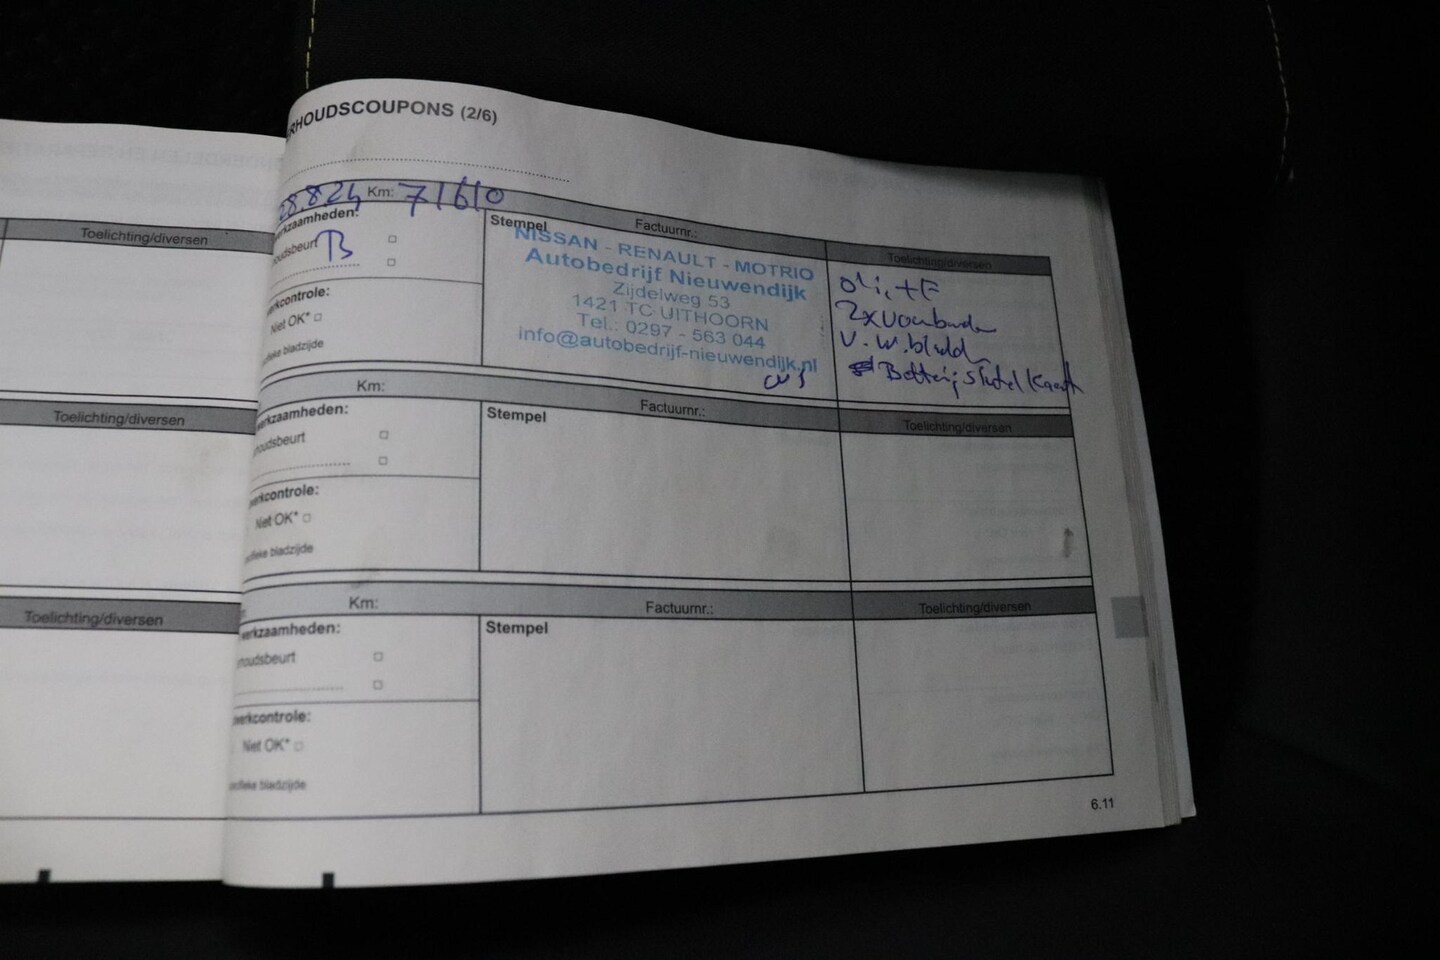 RHOUDSCOUPONS (2/6)
28.8.24 Km: 71610
rkzaamheden:
Stempel
Factuurnr.:
Toelichting/diversen
oudsbeurt B
NISSAN - RENAULT - MOTRIO
Autobedrijf Nieuwendijk
Zijdelweg 53
1421 TC UITHOORN
Tel.: 0297 - 563 044
info@autobedrijf-nieuwendijk.nl
olie, + F
2x voorbanden
v. w. bladen
Batterij sleutel kaart
erkcontrole:
Niet OK*
fieke bladzijde
Km:
Factuurnr.:
Toelichting/diversen
erkzaamheden:
Stempel
houdsbeurt
erkcontrole:
Niet OK*
cifieke bladzijde
Km:
Factuurnr.:
Toelichting/diversen
erkzaamheden:
Stempel
houdsbeurt
werkcontrole:
Niet OK*
cifieke bladzijde
6.11
Toelichting/diversen
Toelichting/diversen
Toelichting/diversen